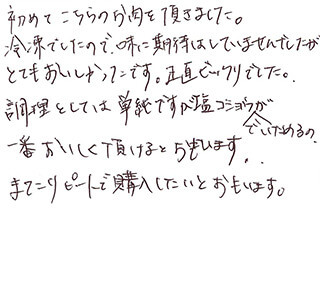 初めてこちらのお肉を頂きました。
冷凍でしたので、味に期待はしていませんでしたが
とてもおいしかったです。正直ビックリでした。
調理としては単純ですが塩コショウが
でいためるの
一番おいしく頂けると思います。
またリピートで購入したいとおもいます。